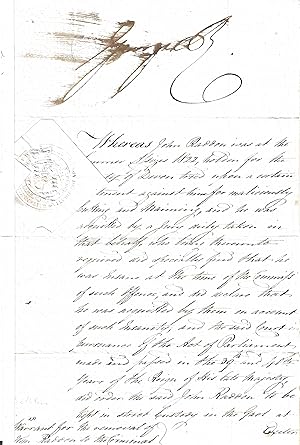 George R
Whereas John Rddon was at the
Assizes 1823, holden for the
of Devon tried upon a certain
against him for maliciously
cutting and Maiming, and he was
acquitted by a jury duly taken in
that behalf who being thereunto
required did specially find that he
was insane at the time of the
of such offence, and did declare that
he was acquitted by them in account
of such Insanity, and the said Court in
pursuance of the Act of Parliament
made and passed in the 39th and 40th
Years of the Reign of His late Majesty,
did order the said John Rddon to be
kept in strict Custody in the gaol at
Warrant for the removal of
John Rddon to the Criminal